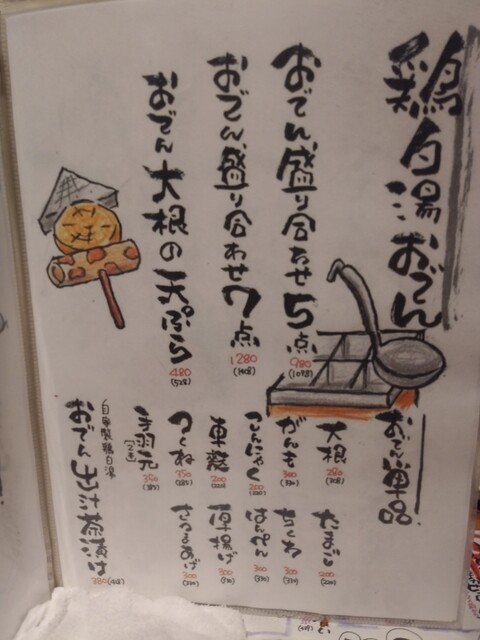 鶏白湯おでん
おでん盛り合わせ5点
980
(1078)
おでん盛り合わせ7点
1280
(1408)
おでん大根の天ぷら
480
(528)
おでん単品
大根
280
(308)
たまご
200
(220)
がんも
300
(330)
ちくわ
300
(330)
こんにゃく
200
(220)
はんぺん
300
(330)
車麩
200
(220)
厚揚げ
300
つくね
350
(385)
300
手羽元
[2本]
350
(385)
自家製鶏白湯
おでん出汁茶漬け
380
(418)